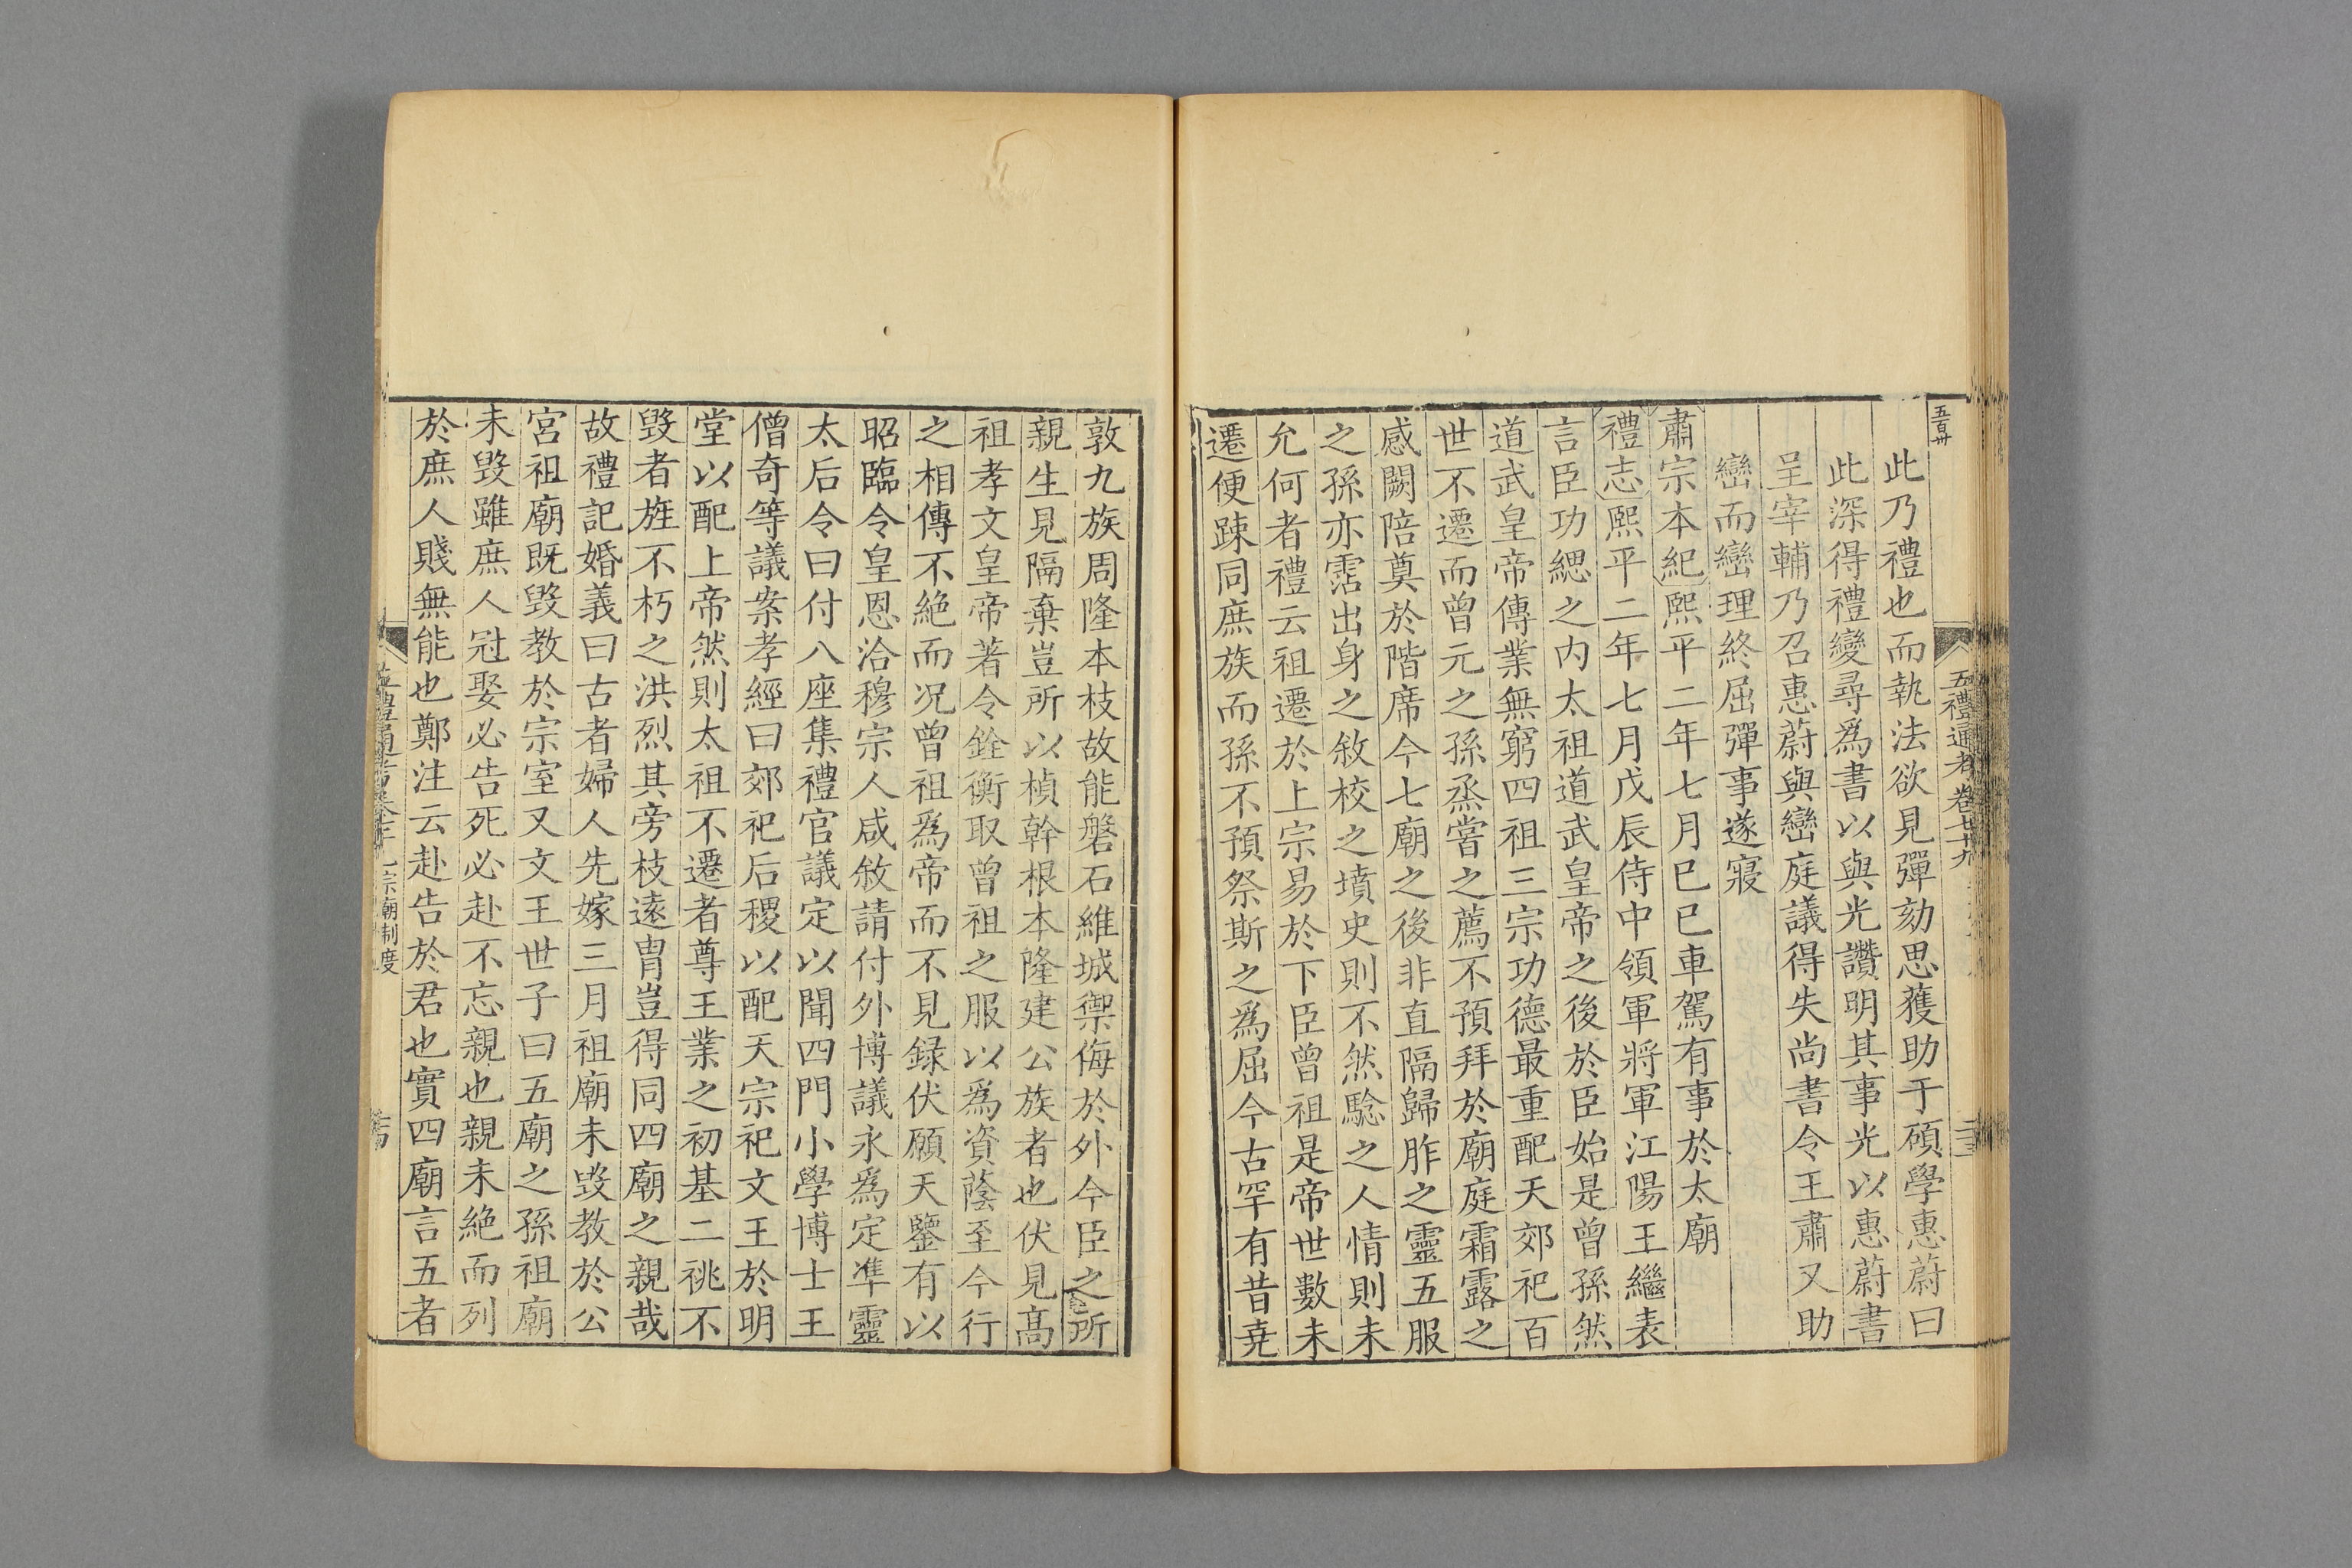 五百卅
五禮通考卷七十九
此乃禮也而執法欲見彈劾思獲助于碩學惠蔚曰
此深得禮變尋爲書以與光讚明其事光以惠蔚書
呈宰輔乃召惠蔚與巒庭議得失尚書令王肅又助
巒而巒理終屈彈事遂寢
肅宗本紀熙平二年七月己巳車駕有事於太廟
禮志熙平二年七月戊辰侍中領軍將軍江陽王繼表
言臣功緦之内太祖道武皇帝之後於臣始是曾孫然
道武皇帝傳業無窮四祖三宗功德最重配天郊祀百
世不遷而曾元之孫烝嘗之薦不預拜於廟庭霜露之
感闕陪奠於階席今七廟之後非直隔歸胙之靈五服
之孫亦霑出身之敘校之墳史則不然驗之人情則未
允何者禮云祖遷於上宗易於下臣曾祖是帝世數未
遷便踈同庶族而孫不預祭斯之爲屈今古罕有昔堯
敦九族周隆本枝故能磐石維城禦侮於外今臣之所
親生見隔棄豈所以楨幹根本隆建公族者也伏見髙
祖孝文皇帝著令銓衡取曾祖之服以爲資蔭至今行
之相傳不絶而况曾祖爲帝而不見録伏願天鑒有以
昭臨令皇恩洽穆宗人咸敘請付外博議永爲定準靈
太后令曰付八座集禮官議定以聞四門小學博士王
僧奇等議案孝經曰郊祀后稷以配天宗祀文王於明
堂以配上帝然則太祖不遷者尊王業之初基二祧不
毀者旌不朽之洪烈其旁枝遠胄豈得同四廟之親哉
故禮記婚義曰古者婦人先嫁三月祖廟未毀教於公
宮祖廟既毀教於宗室又文王世子曰五廟之孫祖廟
未毀雖庶人冠娶必告死必赴不忘親也親未絶而列
於庶人賤無能也鄭注云赴告於君也實四廟言五者
宗廟制度